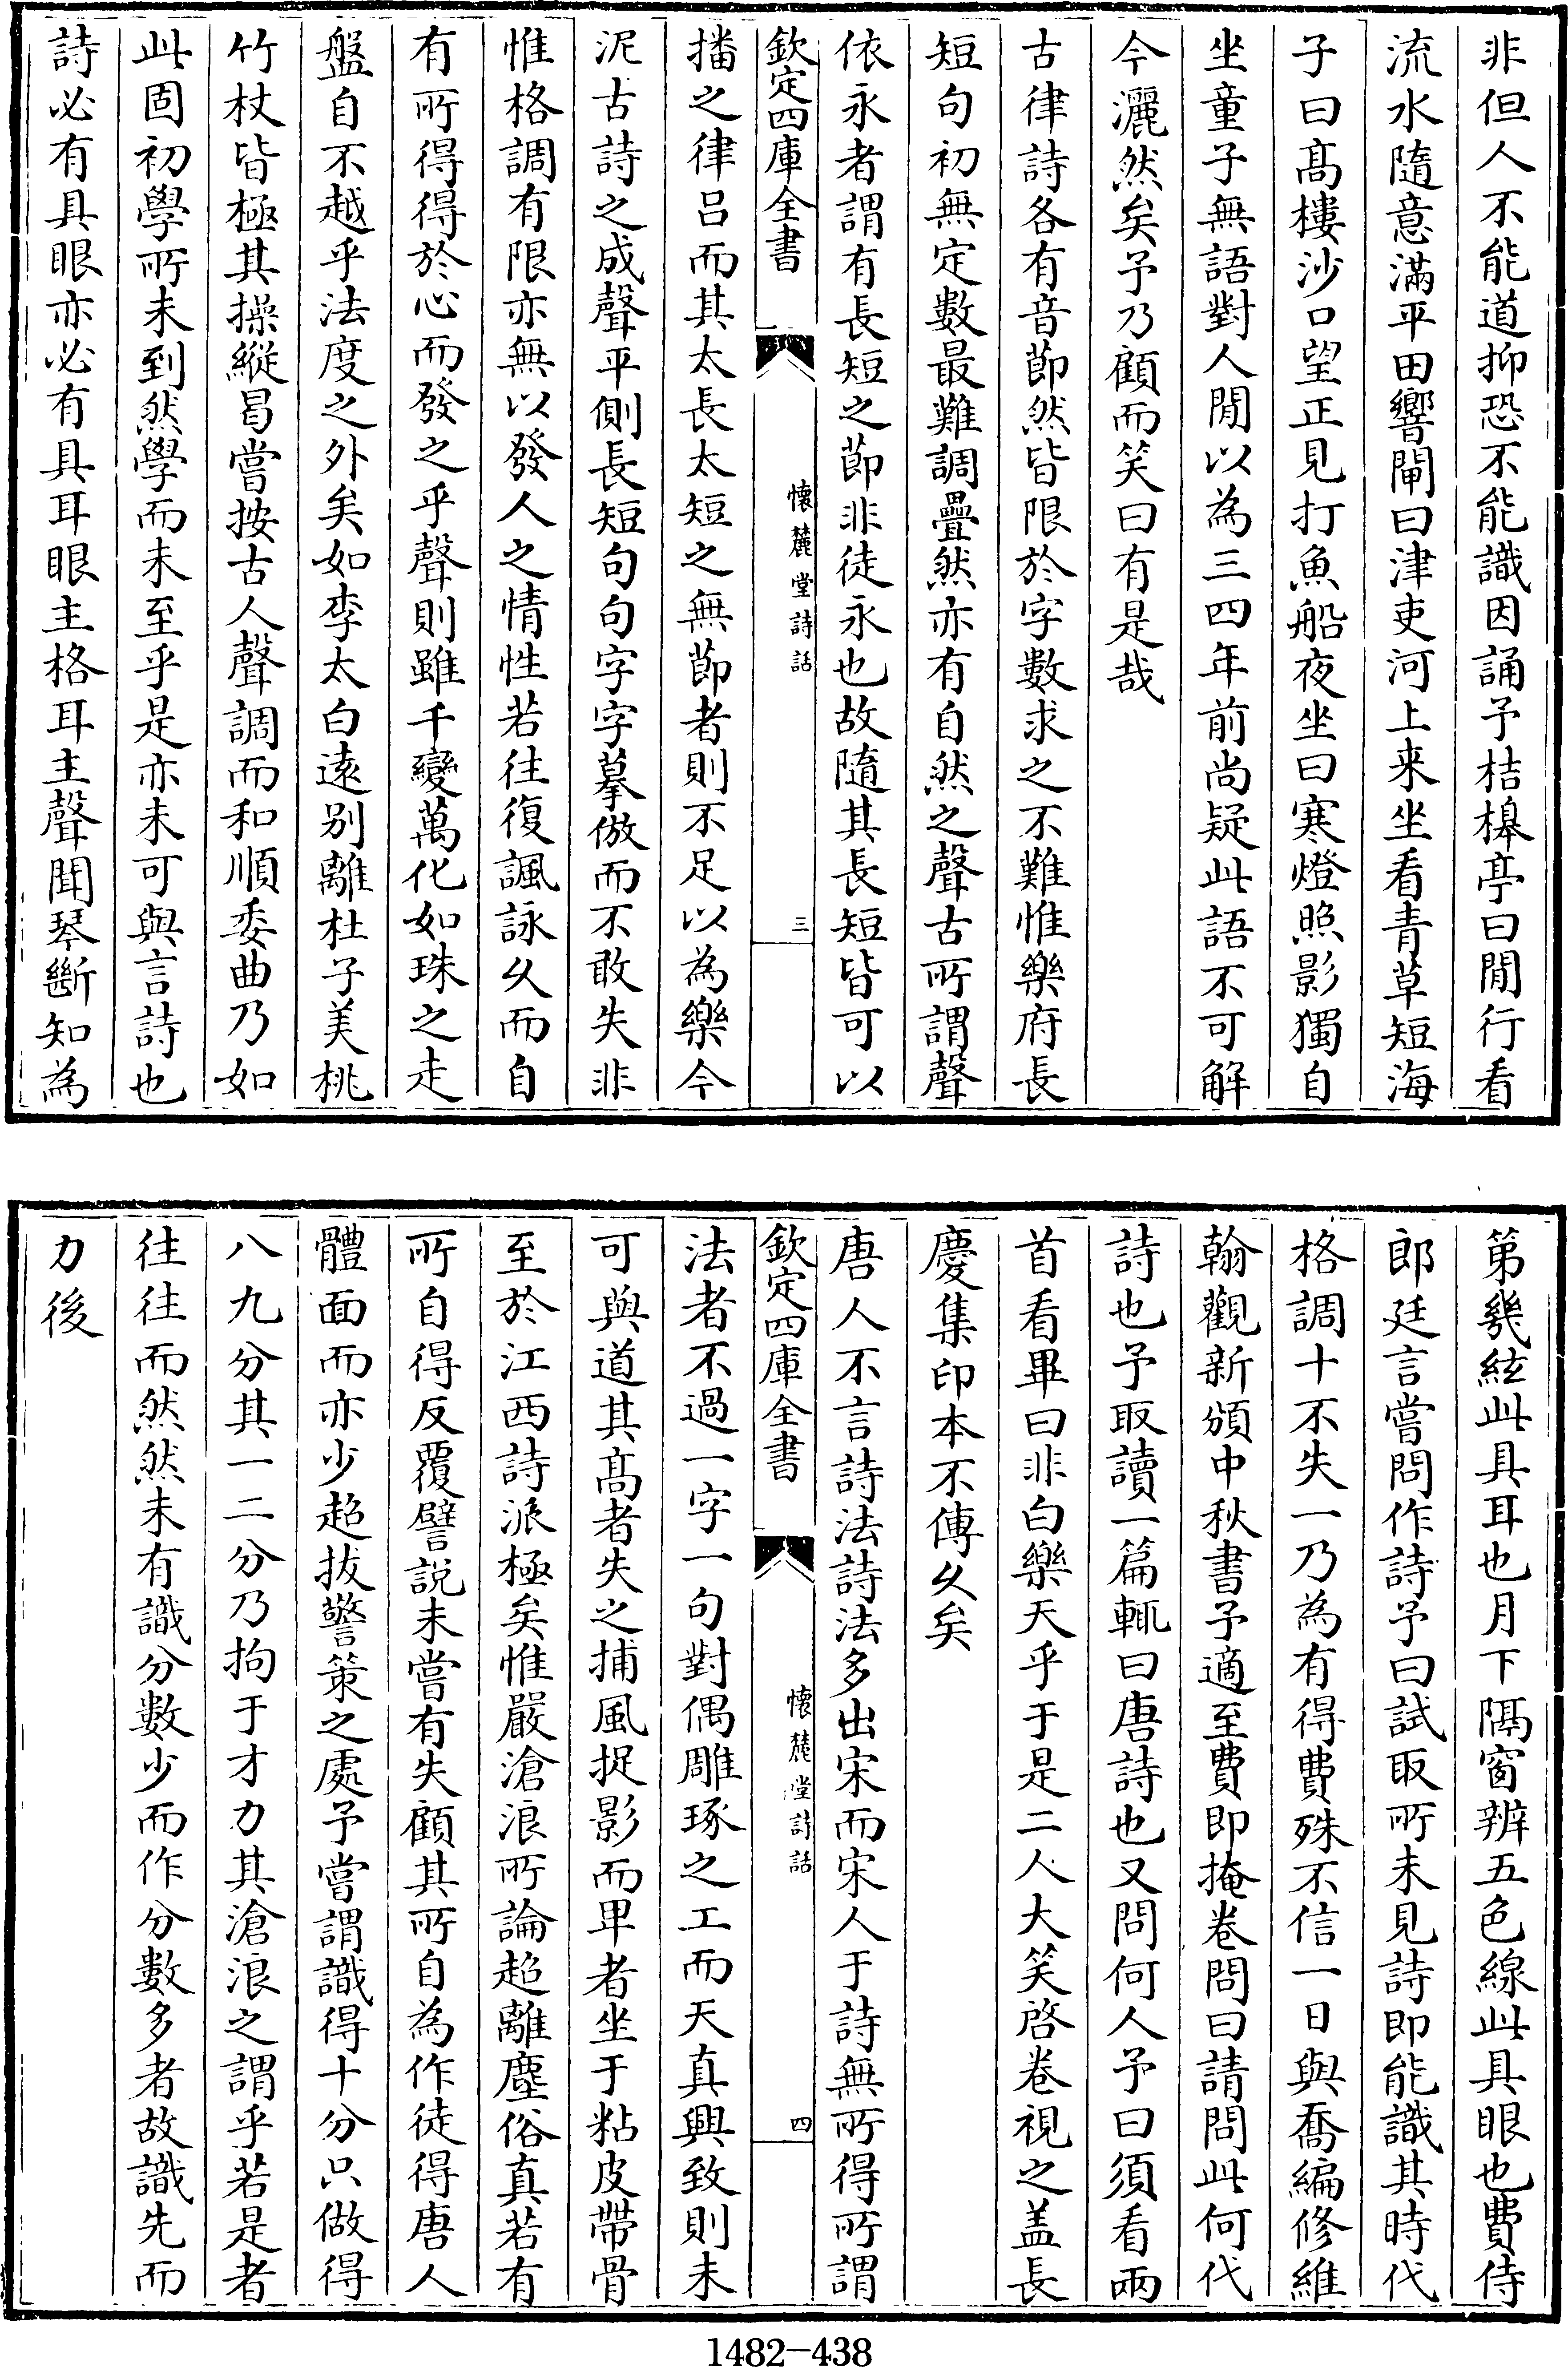 非但人不能道抑恐不能識因誦予桔槹亭曰閒行看
流水隨意滿平田響閘曰津吏河上来坐看青草短海
子曰髙樓沙口望正見打魚船夜坐曰寒燈照影獨自
坐童子無語對人閒以為三四年前尚疑此語不可解
今灑然矣予乃顧而笑曰有是哉
古律詩各有音節然皆限於字數求之不難惟樂府長
短句初無定數最難調疊然亦有自然之聲古所謂聲
依永者謂有長短之節非徒永也故隨其長短皆可以
欽定四庫全書
懷麓堂詩話
三
播之律吕而其太長太短之無節者則不足以為樂今
泥古詩之成聲平側長短句句字字摹倣而不敢失非
惟格調有限亦無以發人之情性若往復諷詠久而自
有所得得於心而發之乎聲則雖千變萬化如珠之走
盤自不越乎法度之外矣如李太白遠别離杜子美桃
竹杖皆極其操縱曷嘗按古人聲調而和順委曲乃如
此固初學所未到然學而未至乎是亦未可與言詩也
詩必有具眼亦必有具耳眼主格耳主聲聞琴斷知為
第幾絃此具耳也月下隔窗辨五色線此具眼也費侍
郎廷言嘗問作詩予曰試取所未見詩即能識其時代
格調十不失一乃為有得費殊不信一日與喬編修維
翰觀新頒中秋書予適至費即掩卷問曰請問此何代
詩也予取讀一篇輒曰唐詩也又問何人予曰須看兩
首看畢曰非白樂天乎于是二人大笑啓卷視之盖長
慶集印本不傳久矣
唐人不言詩法詩法多出宋而宋人于詩無所得所謂
欽定四庫全書
懷麓堂詩話
四
法者不過一字一句對偶雕琢之工而天真興致則未
可與道其髙者失之捕風捉影而卑者坐于粘皮帶骨
至於江西詩派極矣惟嚴滄浪所論超離塵俗真若有
所自得反覆譬説未嘗有失顧其所自為作徒得唐人
體面而亦少超拔警策之處予嘗謂識得十分只做得
八九分其一二分乃拘于才力其滄浪之謂乎若是者
往往而然然未有識分數少而作分數多者故識先而
力後
1482-438